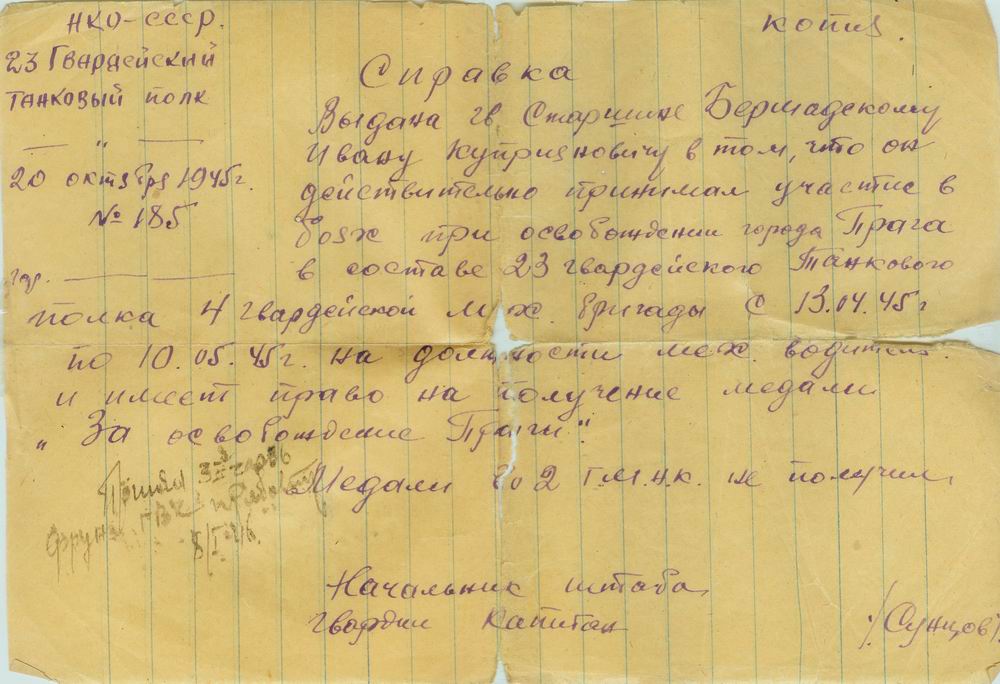 НКО-СССР.
копия.
23 Гвардейский
танковый полк
— " —
20 октября 1945г.
№ 185
гор. — —
Справка
Выдана гв Старшине Бершадскому
Ивану Куприяновичу в том, что он
действительно принимал участие в
боях при освобождении города Прага
в составе 23 гвардейского Танкового
полка 4 гвардейской мех. бригады с 13.04.45г
по 10.05.45г. на должности мех. водителя.
и имеет право на получение медали
„За освобождение Праги".
Медали во 2 Г.М.Н.К. не получил.
Принял
8/I-46.
Начальник штаба
гвардии капитан
/Сунцов/